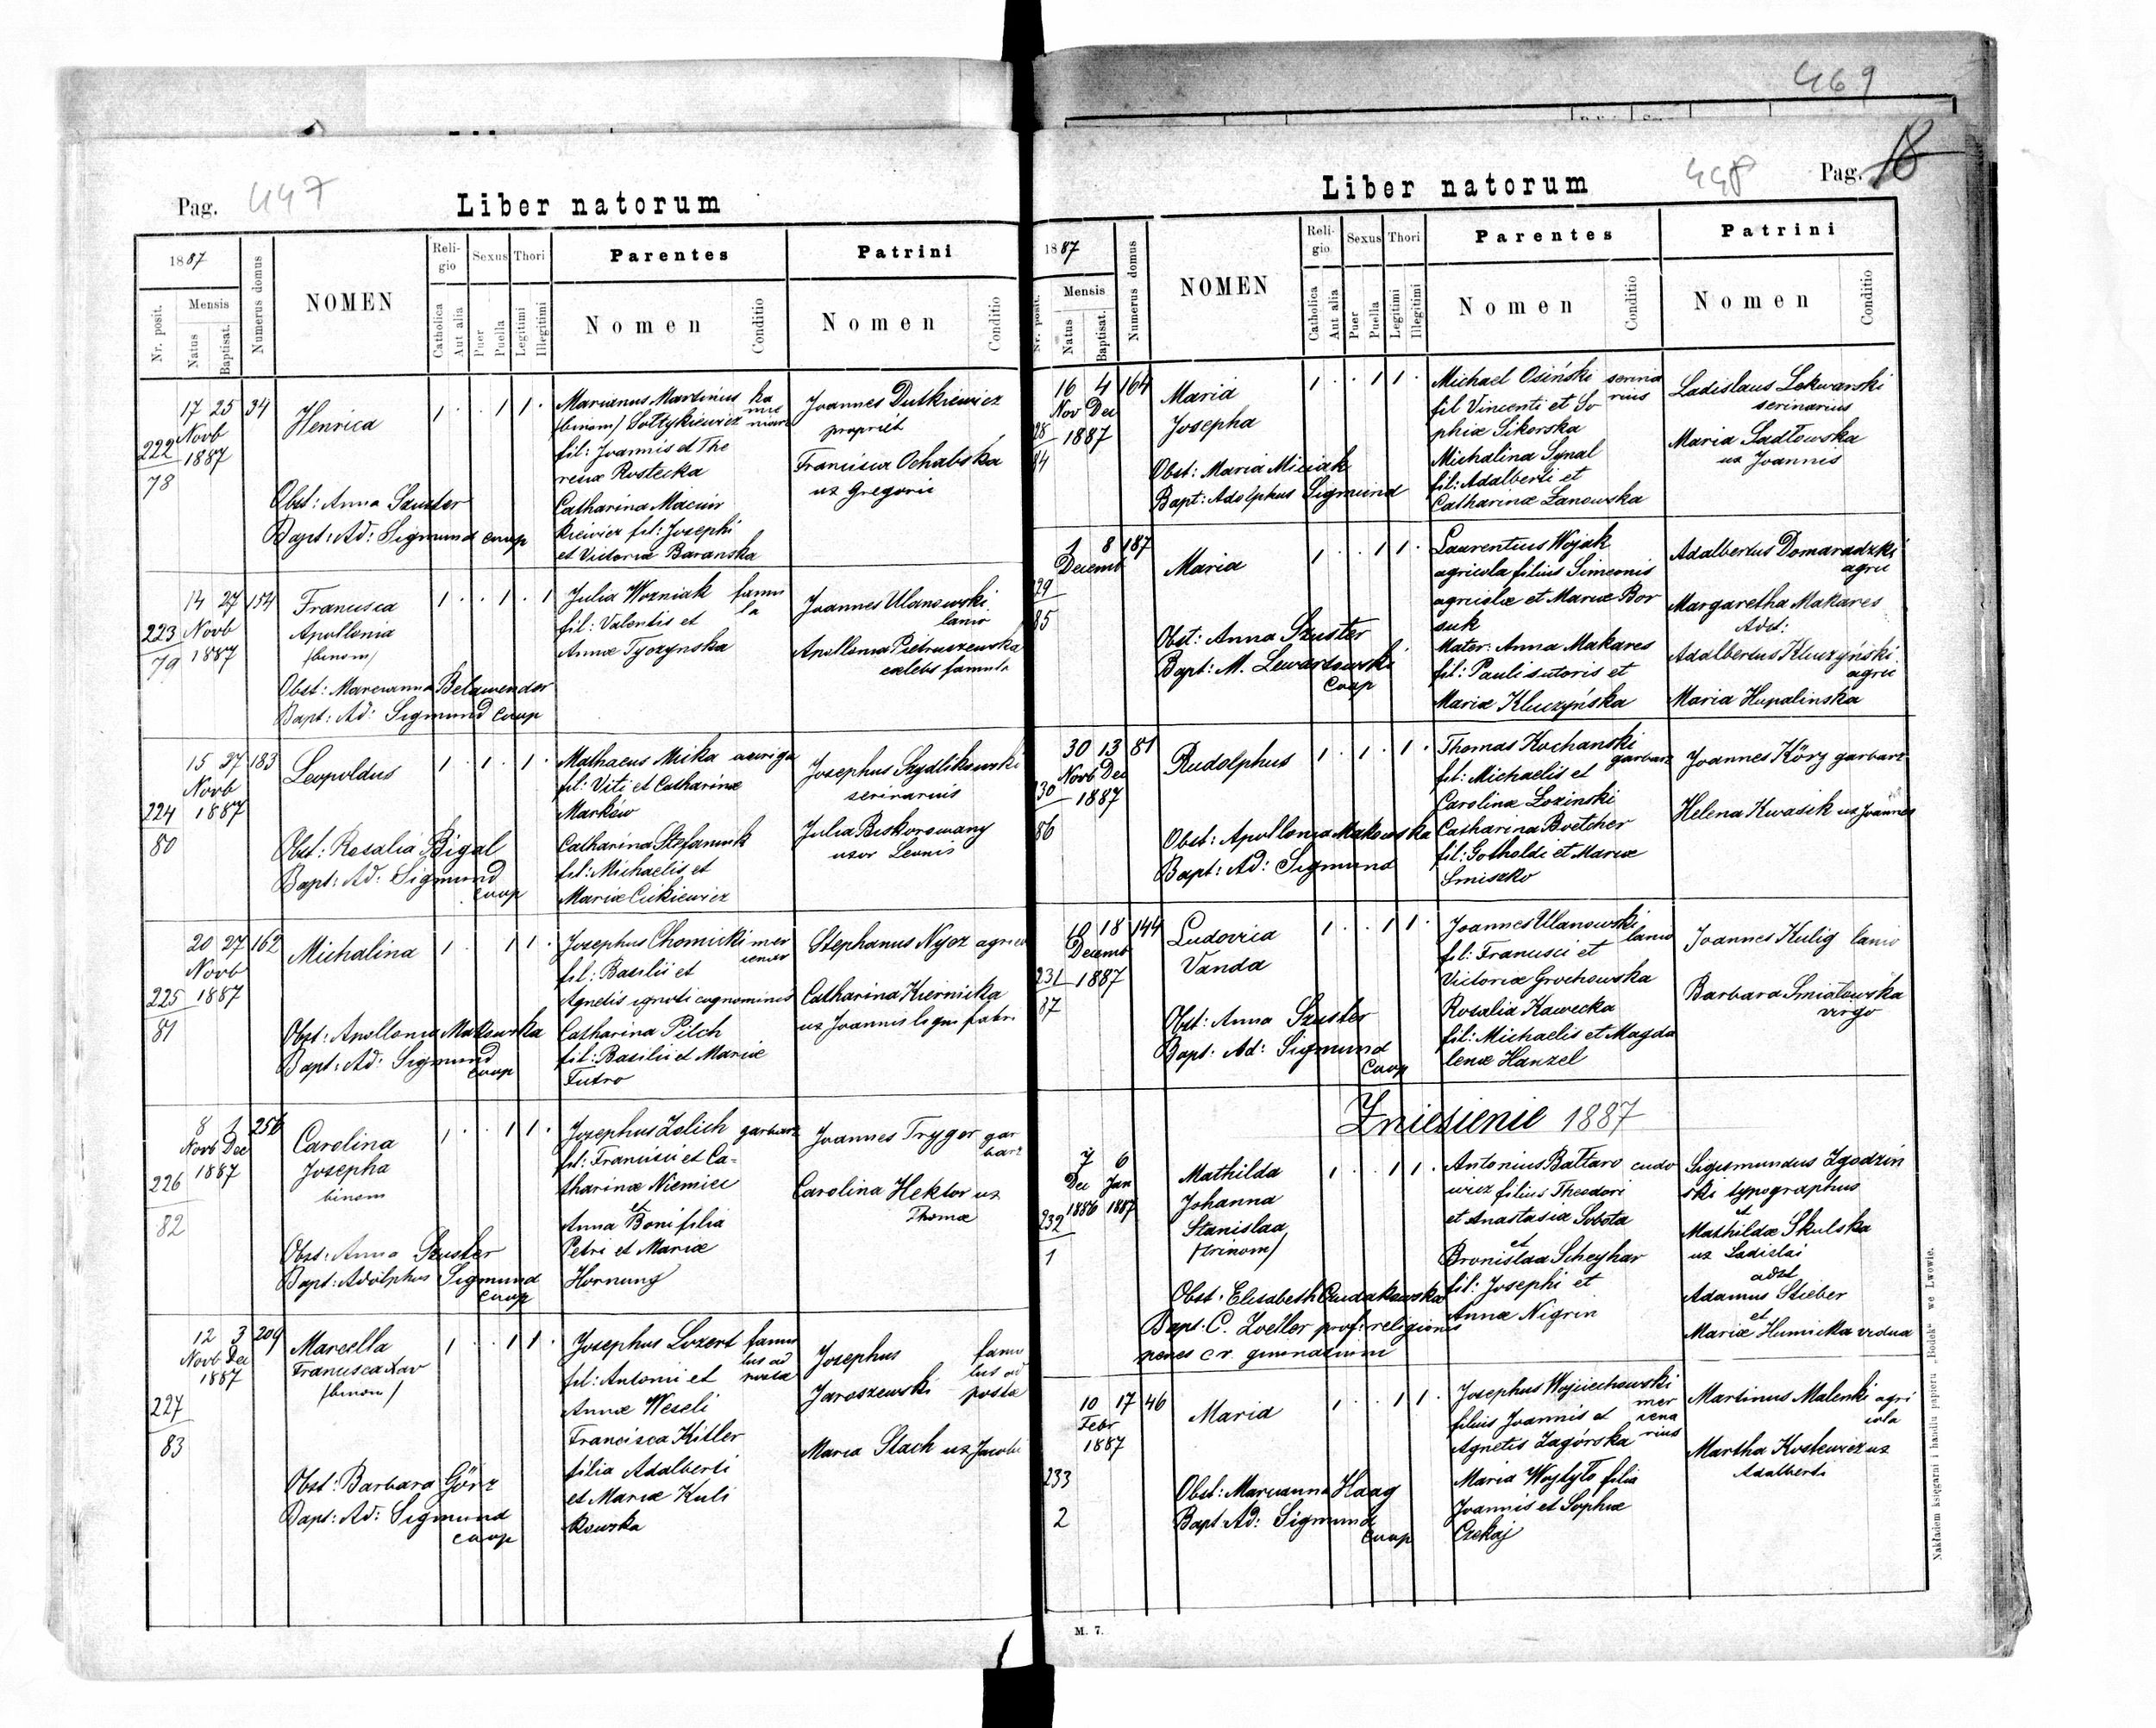 469
Pag. 447
Liber natorum
1887
Nr. posit.
Mensis
Natus
Baptisat.
Numerus domus
NOMEN
Religio
Catholica
Aut alia
Sexus
Puer
Puella
Thori
Legitimi
Illegitimi
Parentes
Nomen
Conditio
Patrini
Nomen
Conditio
222
78
17 25 34
Novb
1887
Henrica
1 . . 1 1 .
Obst: Anna Szuster
Bapt: Ad: Sigmund coop
Marianus Martinus
/binom/ Sottykiewicz
fil: Joannis et The
resiæ Rostecka
Catharina Macuir
kiewicz fil: Josephi
et Victoriæ Baranska
Joannes Dutkiewicz
propriet
Francisca Ochabska
ux Gregorii
223
79
14 27 154
Novb
1887
Francisca
Apollonia
/binom/
1 . . 1 . 1
Obst: Marcianna Belawender
Bapt: Ad: Sigmund coop
Julia Wozniak famu
la
fil: Valentis et
Annæ Tyozynska
Joannes Ulanowski
lanio
Apollonia Pietruszewska
caelebs famula
224
80
15 27 183
Novb
1887
Leopoldus
1 . 1 . 1 .
Obst: Rosalia Bigal
Bapt: Ad: Sigmund
coop
Mathaeus Mika auriga
fil: Viti et Catharinæ
Marków
Catharina Stefaniuk
fil: Michaelis et
Mariæ Cukiewicz
Josephus Szydlikowski
serinarius
Julia Biskorowany
uxor Leonis
225
81
20 27 162
Novb
1887
Michalina
1 . . 1 1 .
Obst: Apollonia Makowska
Bapt: Ad: Sigmund
coop
Josephus Chomicki mer
cenar
fil: Basilii et
Agnetis ignoti cognominis
Catharina Pilch
fil: Basilii et Mariæ
Futro
Stephanus Nycz agrico
Catharina Kiernicka
ux Joannis ligni fabr.
226
82
8 1 256
Novb Dec
1887
Carolina
Josepha
binom
1 . . 1 1 .
Obst: Anna Szuster
Bapt: Adolphus Sigmund
coop
Josephus Zelich garbarz
fil: Francisci et Ca-
tharinæ Niemiec
et
Anna Boni filia
Petri et Mariæ
Hornung
Joannes Tryger gar
barz
Carolina Hektor ux
Thomæ
227
83
12 3 209
Novb Dec
1887
Marcella
Francisca Xav
/binom/
1 . . 1 1 .
Obst: Barbara Görz
Bapt: Ad: Sigmund
coop
Josephus Lozert famu
lus ad
fil: Antonii et
Annæ Weseli
Francisca Kitler
filia Adalberti
et Mariæ Kuli
kowska
Josephus famu
lus ad
Jaroszewski posta
Maria Stach ux Jacobi
Liber natorum
448
Pag. 18
1887
Nr. posit.
Mensis
Natus
Baptisat.
Numerus domus
NOMEN
Religio
Catholica
Aut alia
Sexus
Puer
Puella
Thori
Legitimi
Illegitimi
Parentes
Nomen
Conditio
Patrini
Nomen
Conditio
28
84
16 4 164
Nov Dec
1887
Maria
Josepha
1 . . 1 1 .
Obst: Maria Miciak
Bapt: Adolphus Sigmund
Michael Osiński serina
rius
fil Vincenti et So
phiæ Sikorska
Michalina Synal
fil: Adalberti et
Catharinæ Lanowska
Ladislaus Lekwarski
serinarius
Maria Sadłowska
ux Joannis
29
85
1 8 187
Decemb
Maria
1 . . 1 1 .
Obst: Anna Szuster
Bapt: M. Lewartowski
Coop
Laurentius Wojak
agricola filius Simeonis
agricolæ et Mariæ Bor
suk
Mater: Anna Makares
fil: Pauli sutoris et
Mariæ Kluczyńska
Adalbertus Domaradzki
agric
Margaretha Makares
Adst:
Adalbertus Kluczyński
agric
Maria Hupalinska
30
86
30 13 81
Novb Dec
1887
Rudolphus
1 . 1 . 1 .
Obst: Apollonia Makowska
Bapt: Ad: Sigmund
Thomas Kochanski
garbarz
fil: Michaelis et
Carolinæ Lozinski
Catharina Boetcher
fil: Gotholdi et Mariæ
Smiszko
Joannes Körz garbarz
Helena Kwasik ux Joannes
231
87
10 18 144
Decemb
1887
Ludovica
Vanda
1 . . 1 1 .
Obst: Anna Szuster
Bapt: Ad: Sigmund
Coop
Joannes Ulanowski
lanio
fil: Francisci et
Victoriæ Grochowska
Rosalia Kawecka
fil: Michaelis et Magda
lenæ Hanzel
Joannes Kulig lanio
Barbara Smiałowska
virgo
Zniesienie 1887
232
1
7 6
Dec Jan
1886 1887
Mathilda
Johanna
Stanislaa
/trinom/
1 . . 1 1 .
Obst: Elisabeth Czudakowska
Bapt: C. Loeller prof: religionis
penes c r gimnasium
Antonius Battaro
wicz filius Theodori
et Anastasiæ Sobota
et
Bronislaa Scheyhar
fil: Josephi et
Annæ Nigrin
Sigismundus Zgodzin
ski typographus
et
Mathildæ Skulska
ux Ladislai
adst
Adamus Stieber
et
Mariæ Humicka vidua
233
2
10 17 46
Febr
1887
Maria
1 . . 1 1 .
Obst: Marcianna Haag
Bapt: Ad: Sigmund
coop
Josephus Wojciechowski
mer
cena
rius
filius Joannis et
Agnetis Zagórska
Maria Wojtyło filia
Joannis et Sophiæ
Czekaj
Martinus Malenki agri
cola
Martha Kostewicz ux
Adalberti
M. 7.
Nakładem księgarni i handlu papieru „Bodek" we Lwowie.